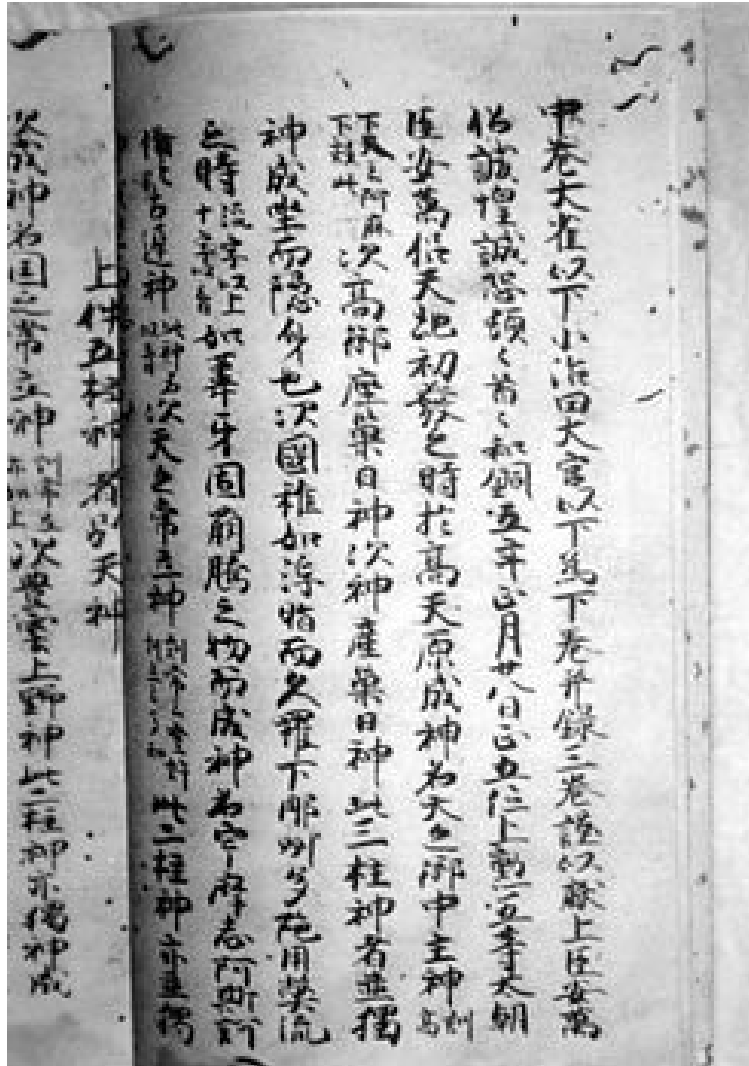 中巻大雀以下小治田大宮以下為下巻并録三巻謹以献上臣安萬
侶誠惶誠恐頓々首々和銅五年正月廿八日正五位上勲五等太朝
臣安萬侶天地初發之時於高天原成神名天之御中主神訓高
下天云阿麻下效此次高御產巣日神次神產巣日神此三柱神者並獨
神成坐而隠身也次國稚如浮脂而久羅下那州多陀用幣流
之時流字以上十字以音如葦牙因萌騰之物而成神名宇摩志阿斯訶
備比古遅神此神名以音次天之常立神訓常云登許訓立云多知此二柱神亦並獨
上件五柱神者別天神
次成神名国之常立神訓常立亦如上次豊雲上野神此二柱神亦獨神成